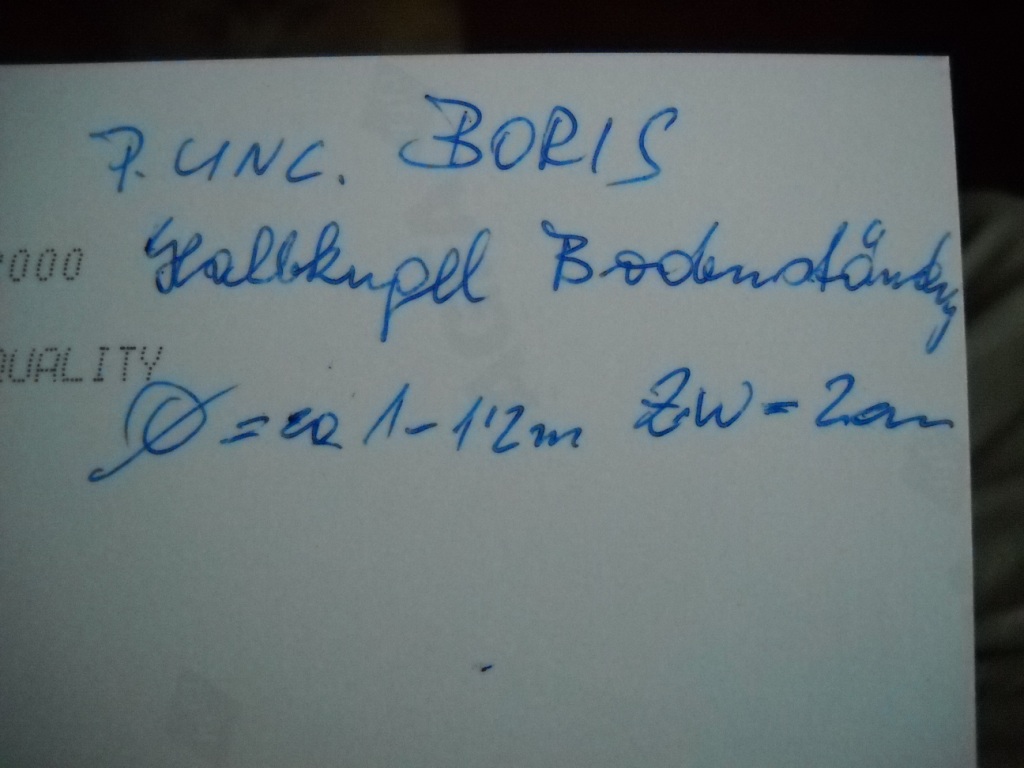 P. UNC. BORIS
Halbkugel Bodenständig
000
QUALITY
Ø = ca 1-1'2m ZW = 2cm